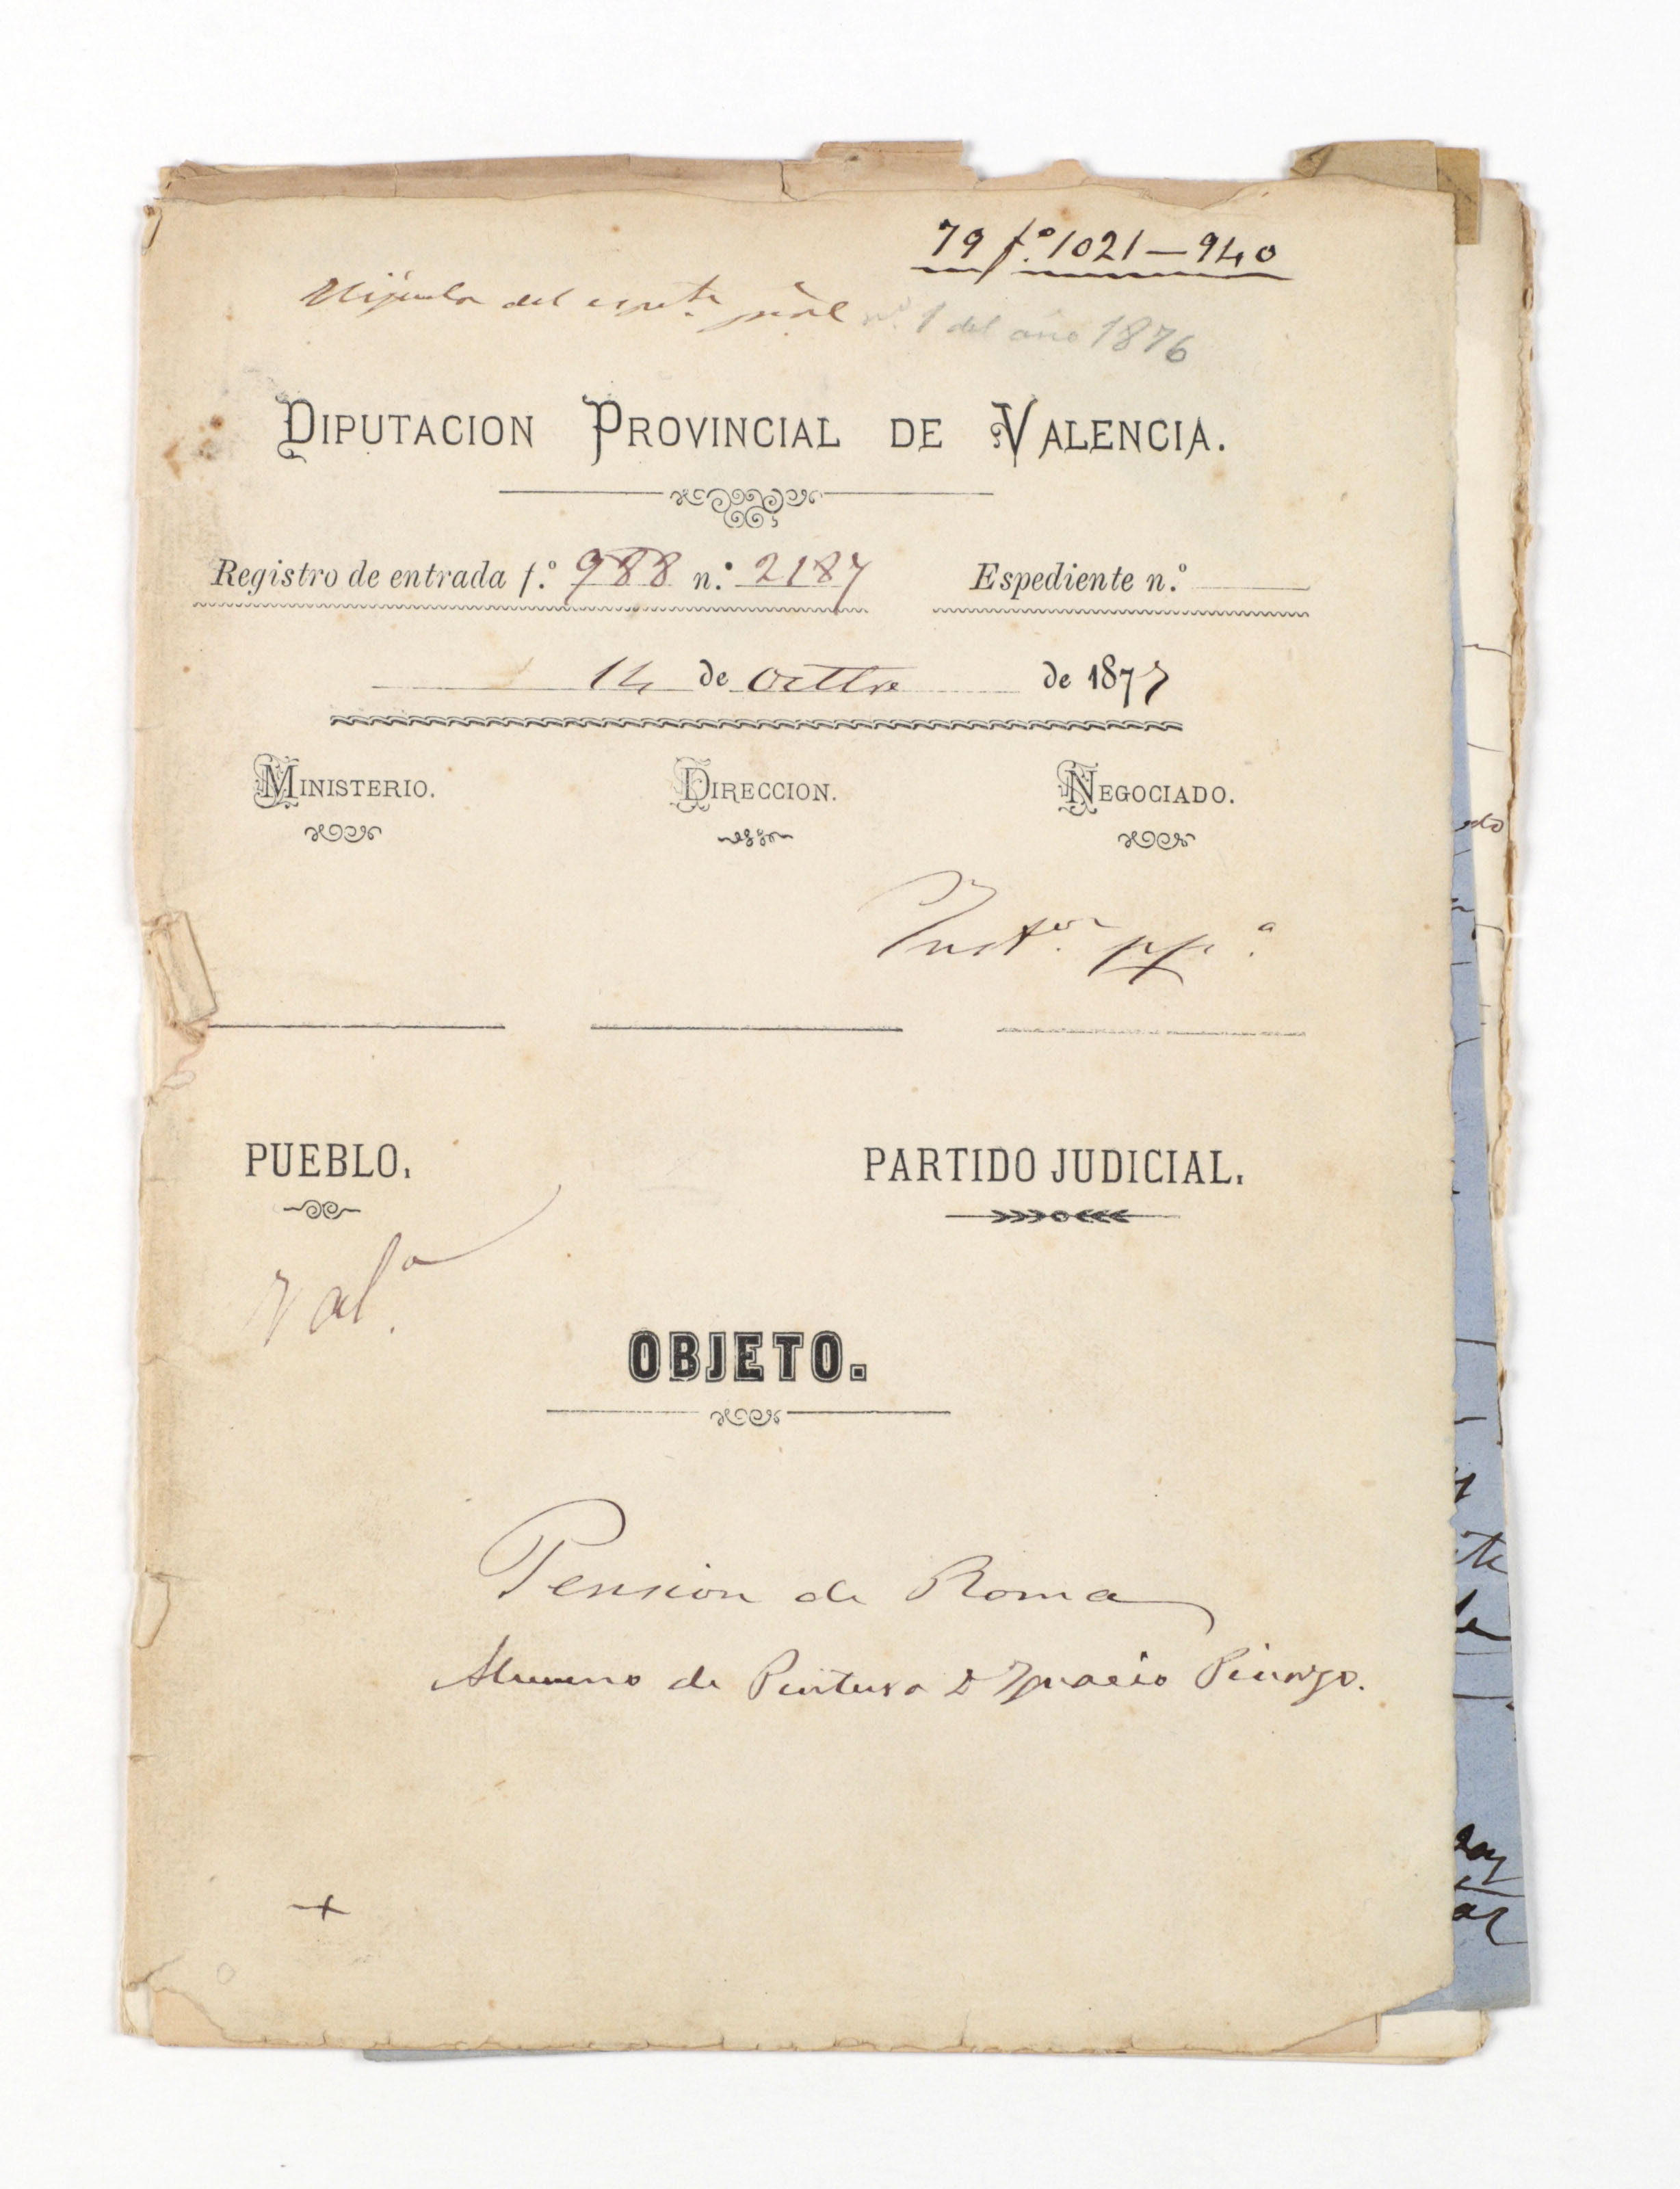 79 f.º 1021 — 940
del espte. pral nº 1 del año 1876
DIPUTACION PROVINCIAL DE VALENCIA.
Registro de entrada f.º 988 n.º 2187 Espediente n.º
14 de Octbre de 1877
MINISTERIO. DIRECCION. NEGOCIADO.
Inst.on pp.a
PUEBLO. PARTIDO JUDICIAL.
Val.a
OBJETO.
Pension de Roma
Alumno de Pintura D Ignacio Pinazo.